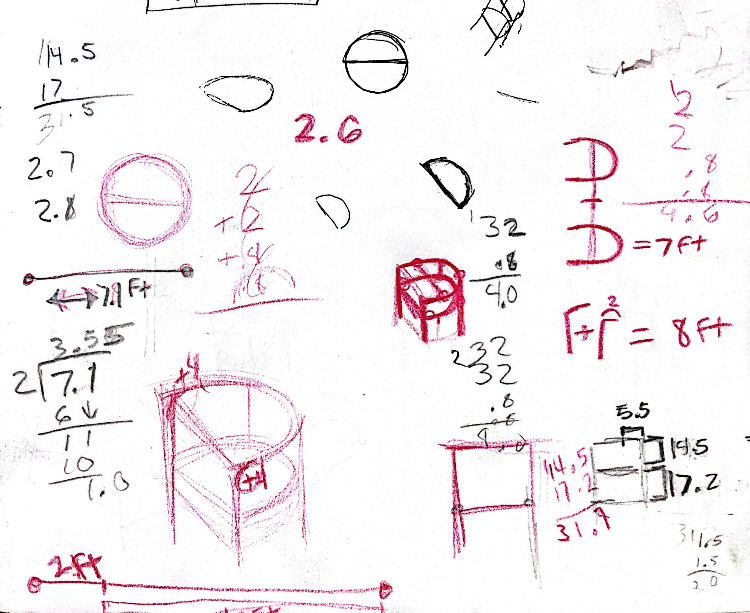 14.5
17
31.5
2.7
2.8
7.1 Ft
3.55
2 7.1
6
11
10
1.0
2.6
2
+2
+4
+4
2 Ft
32
.8
4.0
232
32
.8
2
2
.8
.8
4.6
= 7 Ft
= 8 Ft
5.5
14.5
17.2
14.5
17.2
31.9
31.5
1.5
20